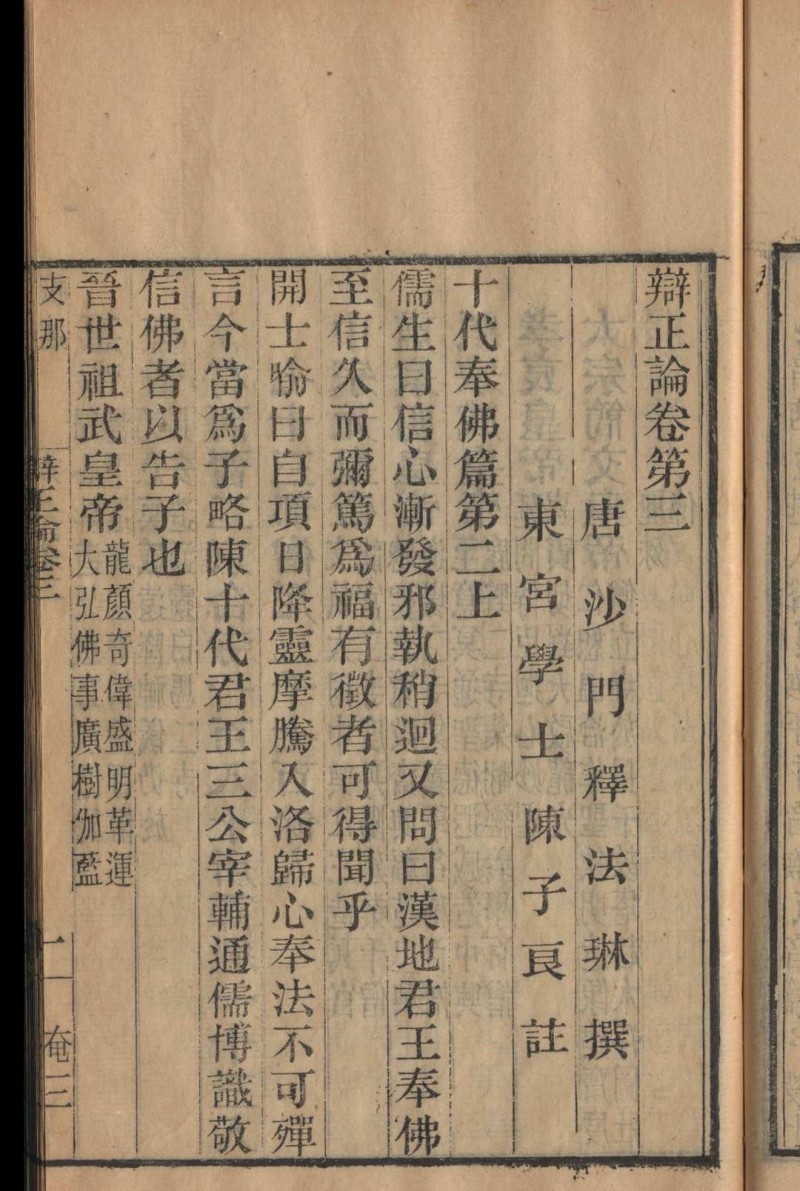 辯正論卷第三
唐沙門釋法琳撰
東宮學士陳子良註
十代奉佛篇第二上
儒生曰信心漸發邪執稍迴又問曰漢地君王奉佛
至信久而彌篤爲福有徵者可得聞乎
開士喻曰自項日降靈摩騰入洛歸心奉法不可殫
言今當爲子略陳十代君王三公宰輔通儒博識敬
信佛者以告子也
晉世祖武皇帝龍顏奇偉盛明革運
大弘佛事廣樹伽藍
支那
辯正論卷三
二
奄三